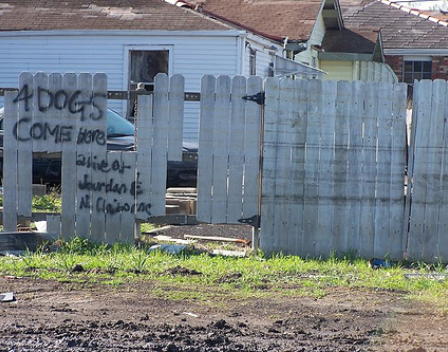 4 DOGS
COME here
alive at
Jourdan &
N. Claiborne